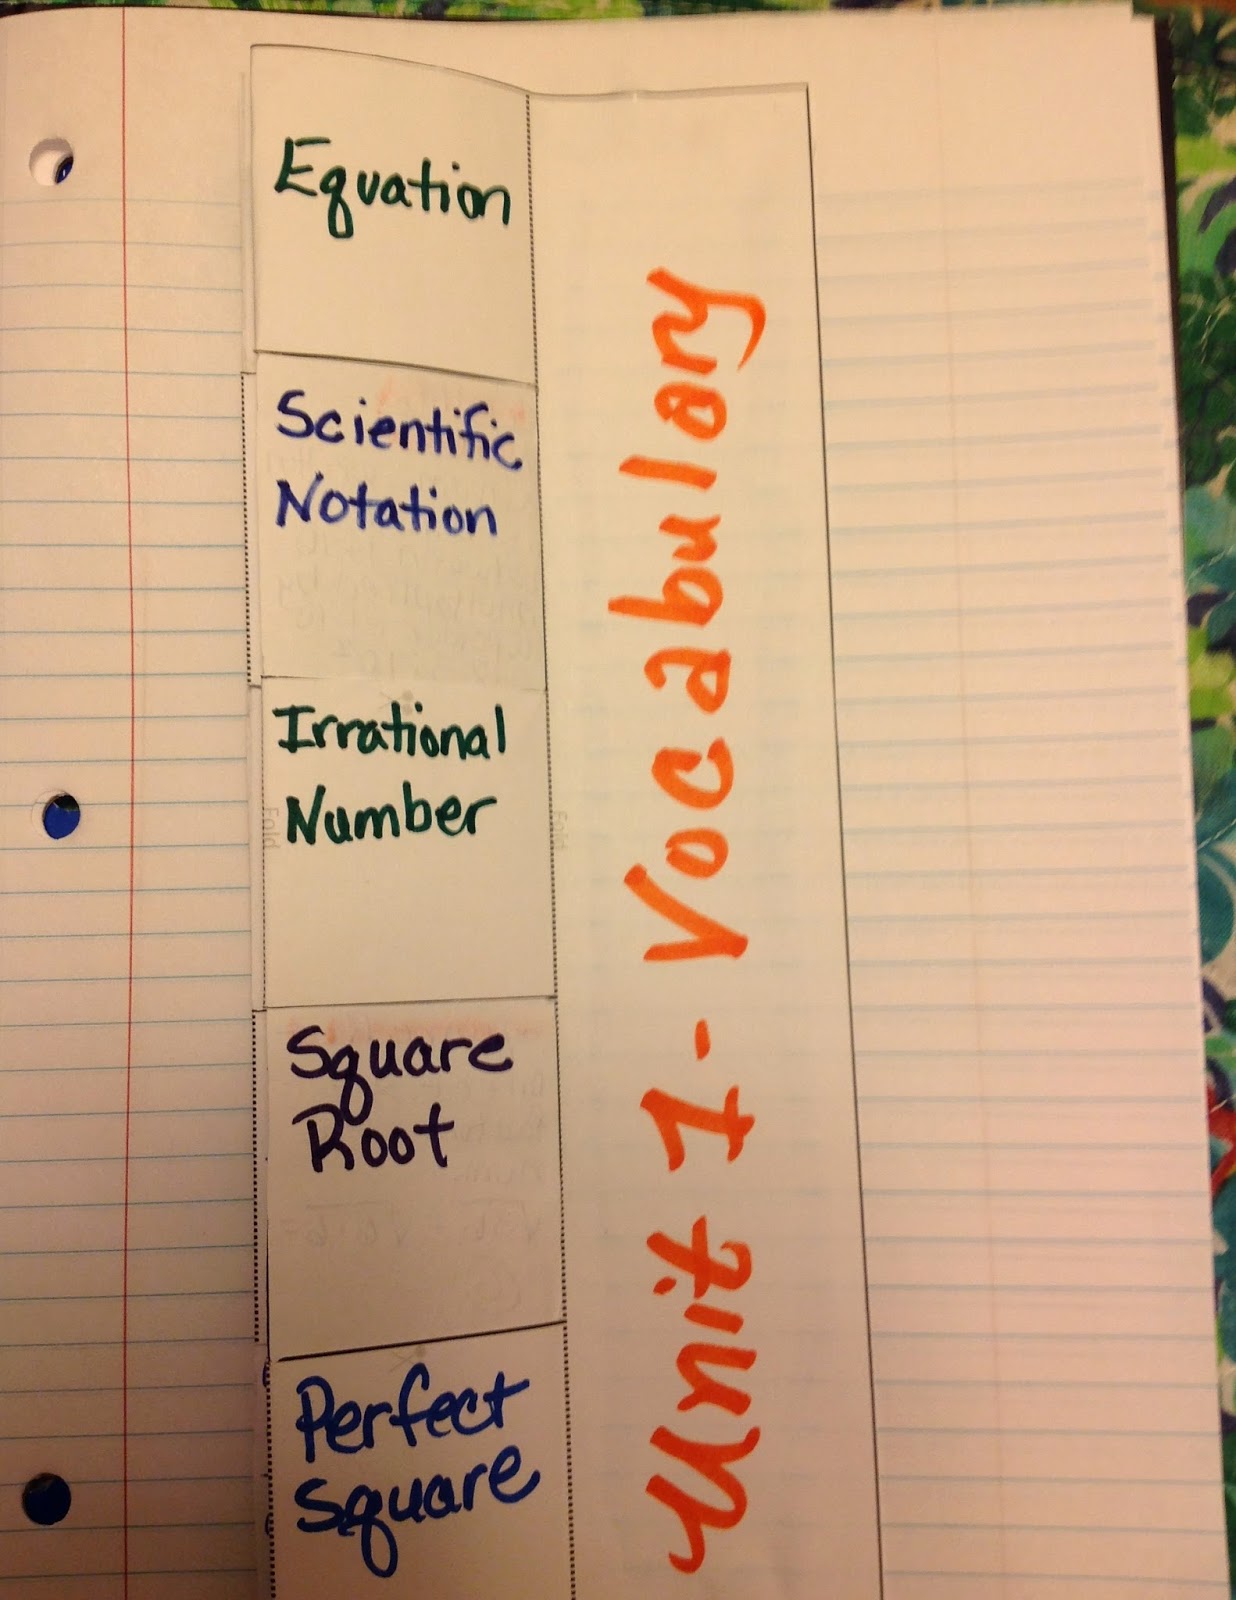 Equation
Scientific
Notation
Irrational
Number
Square
Root
Perfect
Square
Unit 1 - Vocabulary
Fold
Fold